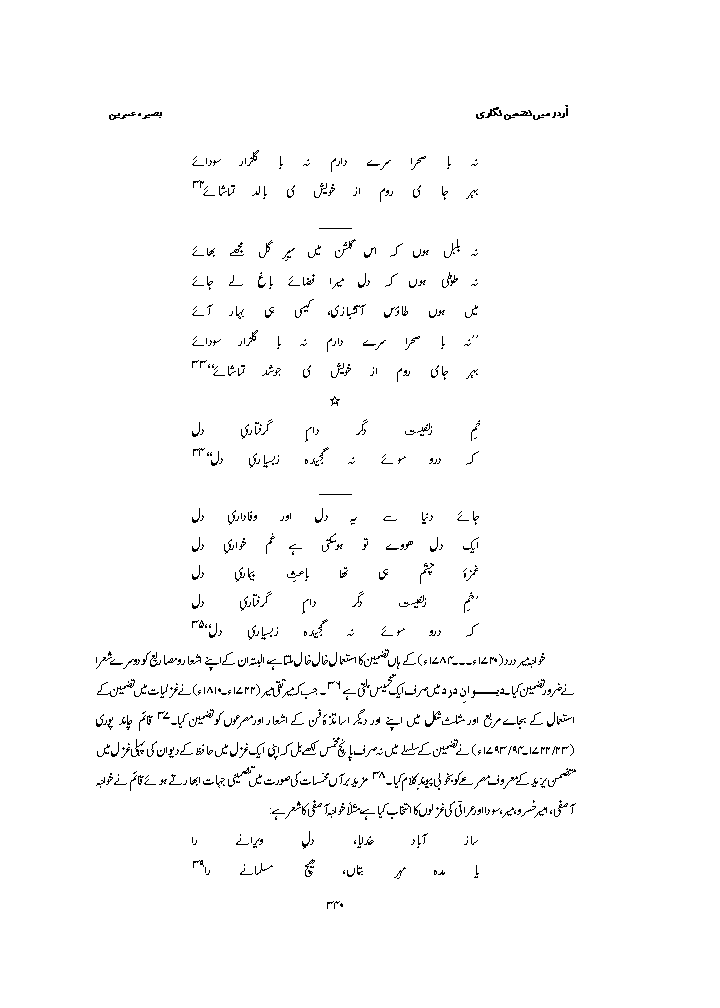 اُردو میں تضمین نگاری
بصیرہ عنبرین
نہ با صحرا سرے دارم نہ با گلزار سودائے
بہر جا می روم از خویش می بالد تماشائے۳۲
نہ بلبل ہوں کہ اس گلشن میں سیرِ گل مجھے بھائے
نہ طوطی ہوں کہ دل میرا فضائے باغ لے جائے
میں ہوں طاؤسِ آتشبازی، کیسی ہی بہار آئے
’’نہ با صحرا سرے دارم نہ با گلزار سودائے
بہر جای روم از خویش می جوشد تماشائے‘‘۳۳
☆
خمِ زلفیست دگر دامِ گرفتاریِ دل
کہ درو موئے نہ گنجیدہ زبسیاریِ دل‘‘۳۴
جائے دنیا سے یہ دل اور وفاداریِ دل
ایک دل ہووے تو ہوسکتی ہے غم خواریِ دل
غمزۂ چشم ہی تھا باعثِ بیماریِ دل
’خمِ زلفیست دگر دامِ گرفتاریِ دل
کہ درو موئے نہ گنجیدہ زبسیاریِ دل‘‘۳۵
خواجہ میر درد (۱۷۲۰ء۔۔۔۱۷۸۴ء) کے ہاں تضمین کا استعمال خال خال ملتا ہے، البتہ ان کے اپنے اشعار و مصاریع کو دوسرے شعرا
نے ضرور تضمین کیا۔ دیوانِ درد میں صرف ایک تخمیس ملتی ہے ۳۶۔ جب کہ میر تقی میر (۱۷۲۲ء۔۱۸۱۰ء) نے غزلیات میں تضمین کے
استعمال کے بجاے مربع اور مثلث شکل میں اپنے اور دیگر اساتذۂ فن کے اشعار اور مصرعوں کو تضمین کیا۔۳۷ قائم چاند پوری
(۱۷۲۲/۲۳۔۱۷۹۳/۹۴ء) نے تضمین کے سلسلے میں نہ صرف پانچ مخمس لکھے بل کہ اپنی ایک غزل میں حافظ کے دیوان کی پہلی غزل میں
متضمن یزید کے معروف مصرعے کو بخوبی پیوندِ کلام کیا۔۳۸ مزید برآں مخمسات کی صورت میں تضمینی جہات ابھارتے ہوئے قائم نے خواجہ
آصفی، امیر خسرو، میر، سودا اور عراقی کی غزلوں کا انتخاب کیا ہے مثلاً خواجہ آصفی کا شعر ہے:
ساز آباد خدایا، دلِ ویرانے را
یا مدہ مہرِ بتاں، ہیچ مسلمانے را۳۹
۳۴۰